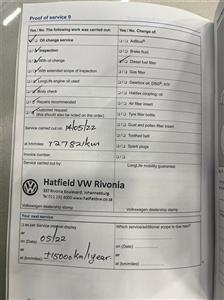 Proof of service 9
Yes / No. The following work was carried out:
Yes / No. Change of:
Oil change service
AdBlue®
Inspection
Brake fluid
With oil change
Diesel fuel filter
With extended scope of inspection
Gas filter
LongLife engine oil used
Gearbox oil:
Body check
Haldex coupling: oil
Repairs recommended
Air filter insert
Customer request
(this should also be noted on the order)
Tyre filler bottle
Service carried out on: 14/05/22
Dust and pollen filter insert
at km/miles: 72782km
Toothed belt
Invoice number:
Spark plugs
Service carried out by:
LongLife mobility guarantee
Hatfield VW Rivonia
337 Rivonia Boulevard, Johannesburg
Volkswagen dealership stamp
Volkswagen dealership stamp
Your next service
as per Service interval display
Which service/additional scope is due next?
or
on (Date) 05/22
or
at (km/miles) ±15000km/1year
on (Date)
or
at (km/miles)